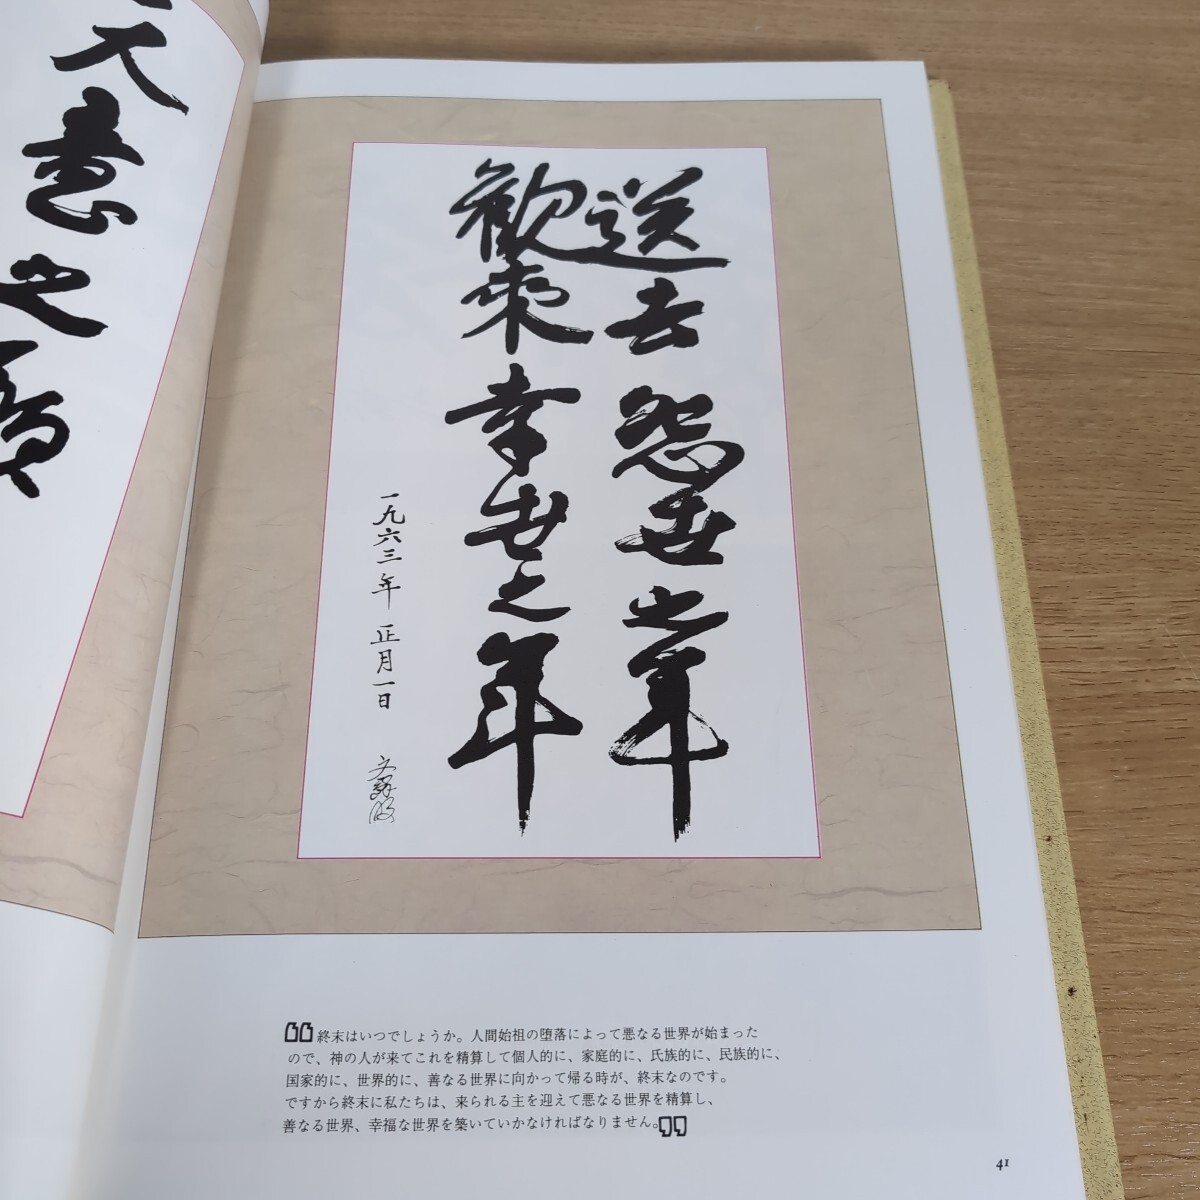 天意之
送去怨世之年
歓來幸世之年
一九六三年 正月一日
終末はいつでしょうか。人間始祖の堕落によって悪なる世界が始まった
ので、神の人が来てこれを精算して個人的に、家庭的に、氏族的に、民族的に、
国家的に、世界的に、善なる世界に向かって帰る時が、終末なのです。
ですから終末に私たちは、来られる主を迎えて悪なる世界を精算し、
善なる世界、幸福な世界を築いていかなければなりません。
41